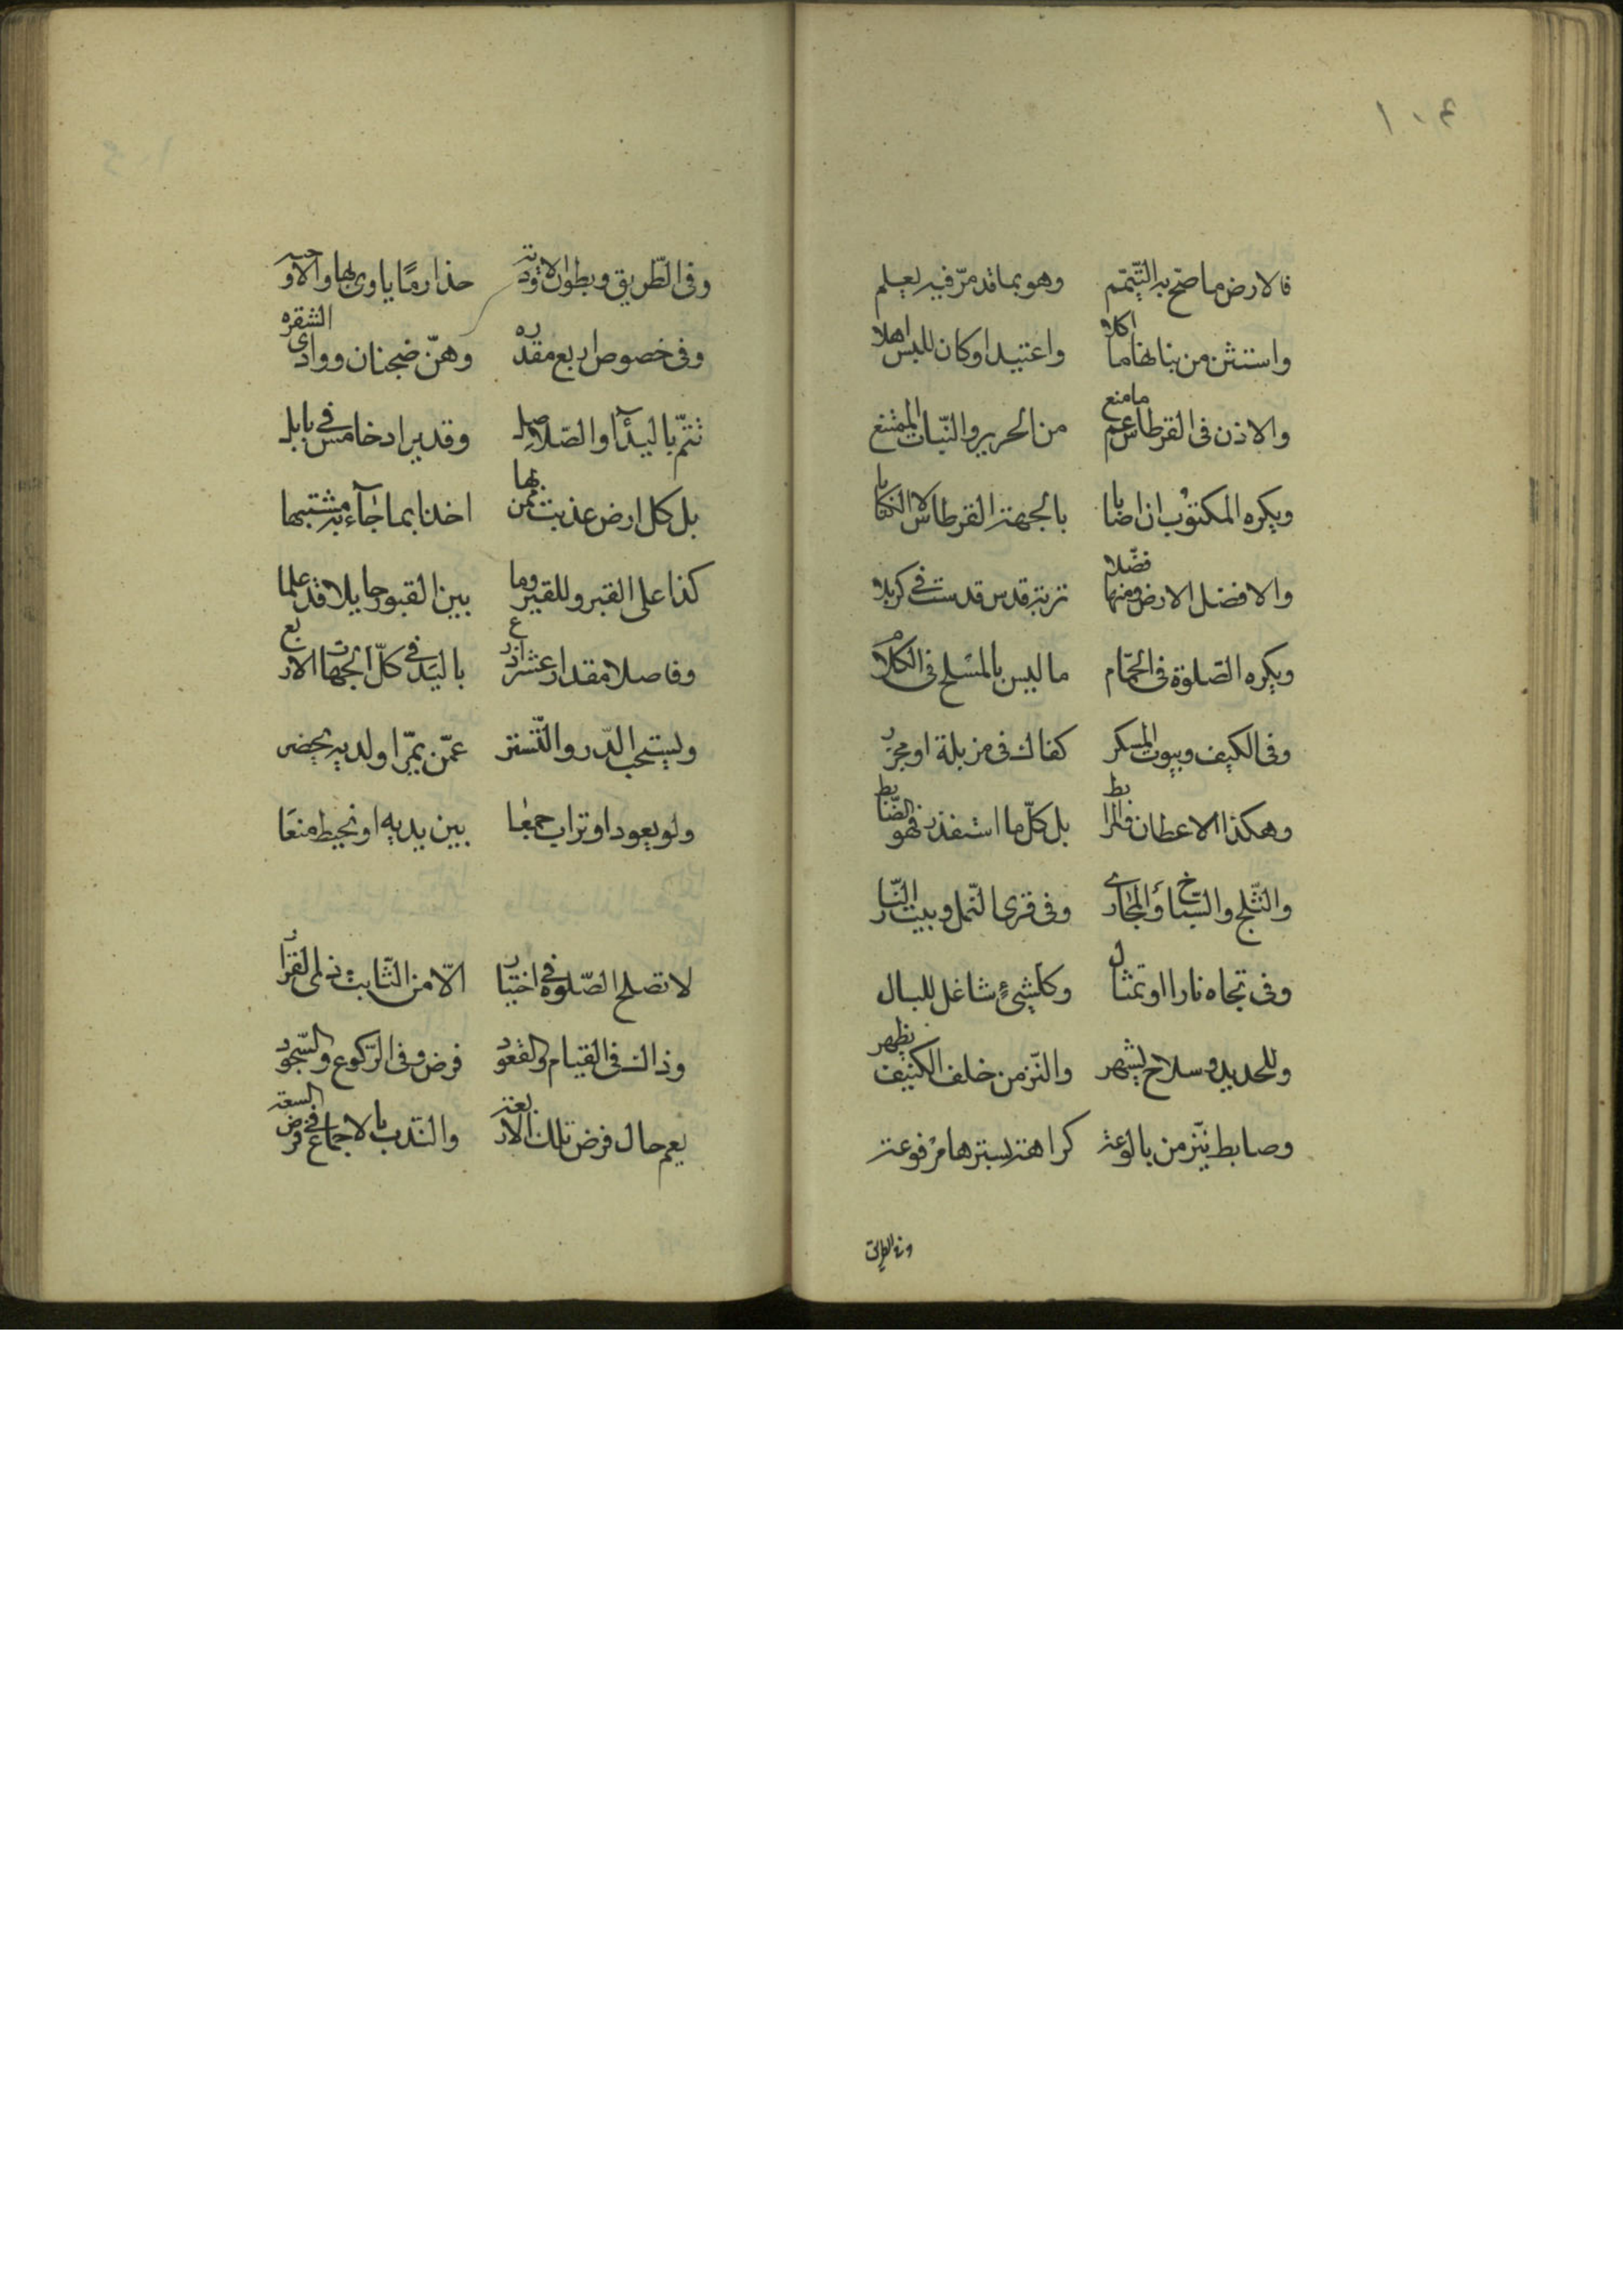 ١٠٤
فالارض ما صح به التيمم وهو بما قد مر فيه يعلم
واستثن من بناتها ما اكلا واعتيد او كان للبس اهلا
والاذن فى القرطاس عم ما منع من الحرير والنبات الممتنع
ويكره المكتوب ان اصابا بالجبهة القرطاس لا الكتابا
والافضل الارض ومنها فضلا تربة قدس قدست فى كربلا
ويكره الصلوة فى الحمام ما ليس بالمسلح فى الكلام
وفى الكنيف وبيوت المسكر كذاك فى مزبلة او مجزر
وهكذا الاعطان والمرابط بل كل ما استقذر فهو الضابط
والثلج والسباخ والمجارى وفى قرى النمل وبيت النار
وفى تجاه نار او تمثال وكلشئ شاغل للبال
وللحديد وسلاح يشهر والنز من خلف الكنيف يظهر
وضابط ينز من بالوعة كراهة بسترها مرفوعة
وفى الطريق
وفى الطريق وبطون الاودية حذار ما ياوى بها والاوجيه
وفى خصوص اربع مقدره وهن ضجنان ووادى الشقره
تتم بالبيدآء والصلاصل وقد يراد خامس فى بابل
بل كل ارض عذبت بمن بها اخذا بما جآء به مشتبها
كذا على القبر وللقبر وما بين القبور حايلا قد علما
وفاصلا مقدار عشر اذرع باليد فى كل الجهات الاربع
ويستحب الدرء والتستر عمن يمر او لديه يحضر
ولو بعود او تراب جمعا بين يديه او بخيط منعا
لا تصلح الصلوة فى اختيار الا من الثابت ذى القرار
وذاك فى القيام والقعود فرض وفى الركوع والسجود
يعم حال فرض تلك الاربعة والندب بالاجماع فى فرض السعة